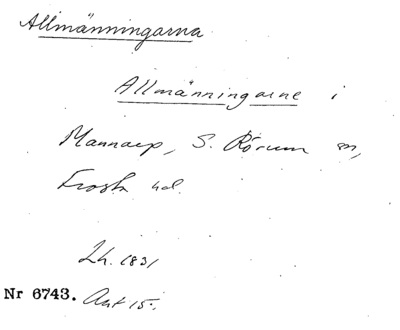 Allmänningarna
Allmänningarne i
Mannarp, S. Rörum sn,
Frosta hd.
Lh. 1831
Nr 6743. Akt 15.